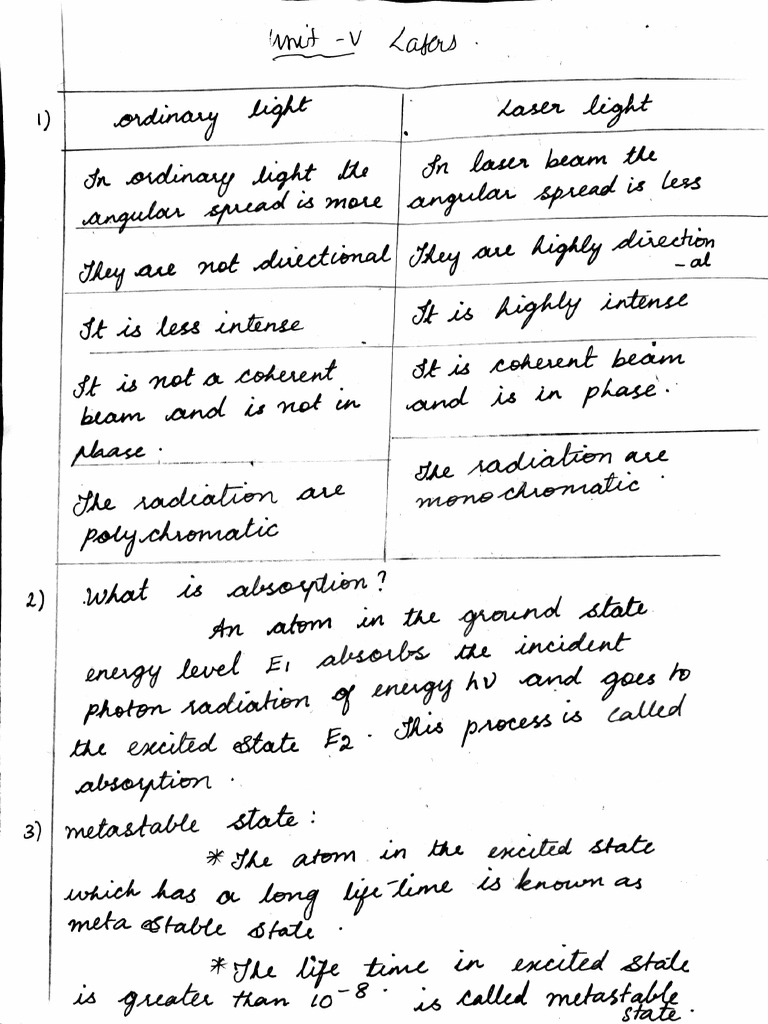 Unit - V Lasers.
1)
ordinary light
Laser light
In ordinary light the
angular spread is more
In laser beam the
angular spread is less
They are not directional
They are highly direction
-al
It is less intense
It is highly intense
It is not a coherent
beam and is not in
phase.
It is coherent beam
and is in phase.
The radiation are
polychromatic
The radiation are
monochromatic.
2) What is absorption?
An atom in the ground state
energy level E1 absorbs the incident
photon radiation of energy hν and goes to
the excited state E2. This process is called
absorption.
3) metastable state:
* The atom in the excited state
which has a long life-time is known as
meta stable state.
* The life time in excited state
is greater than 10⁻⁸. is called metastable
state.